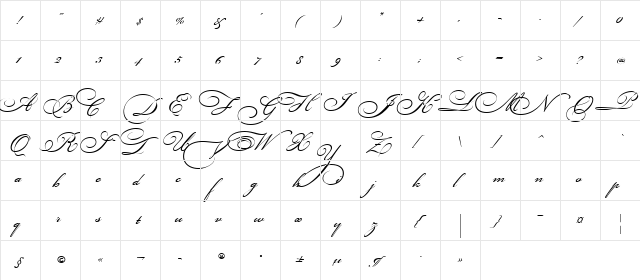 ! " # $ % & ' ( ) * + , - . / 0
1 2 3 4 5 6 7 8 9 : ; < = > ? @
A B C D E F G H I J K L M N O P
Q R S T U V W X Y Z [ \ ] ^ `
a b c d e f g h i j k l m n o p
q r s t u v w x y z { | } ~ ¤ ¦
§ © « ¬ - ® ° ± ´ µ ¶ · ¸ »